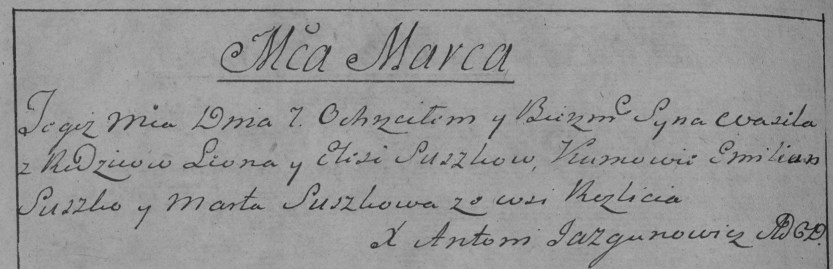 Mca Marca
Tegoż Mca Dnia 7. Ochrzciłem y Bierzmc Syna Wasila
z Rodziców Leona y Elisi Suszkow, Kumowie Emilian
Suszko y Marta Suszkowa ze wsi
X Antoni Jazgunowicz